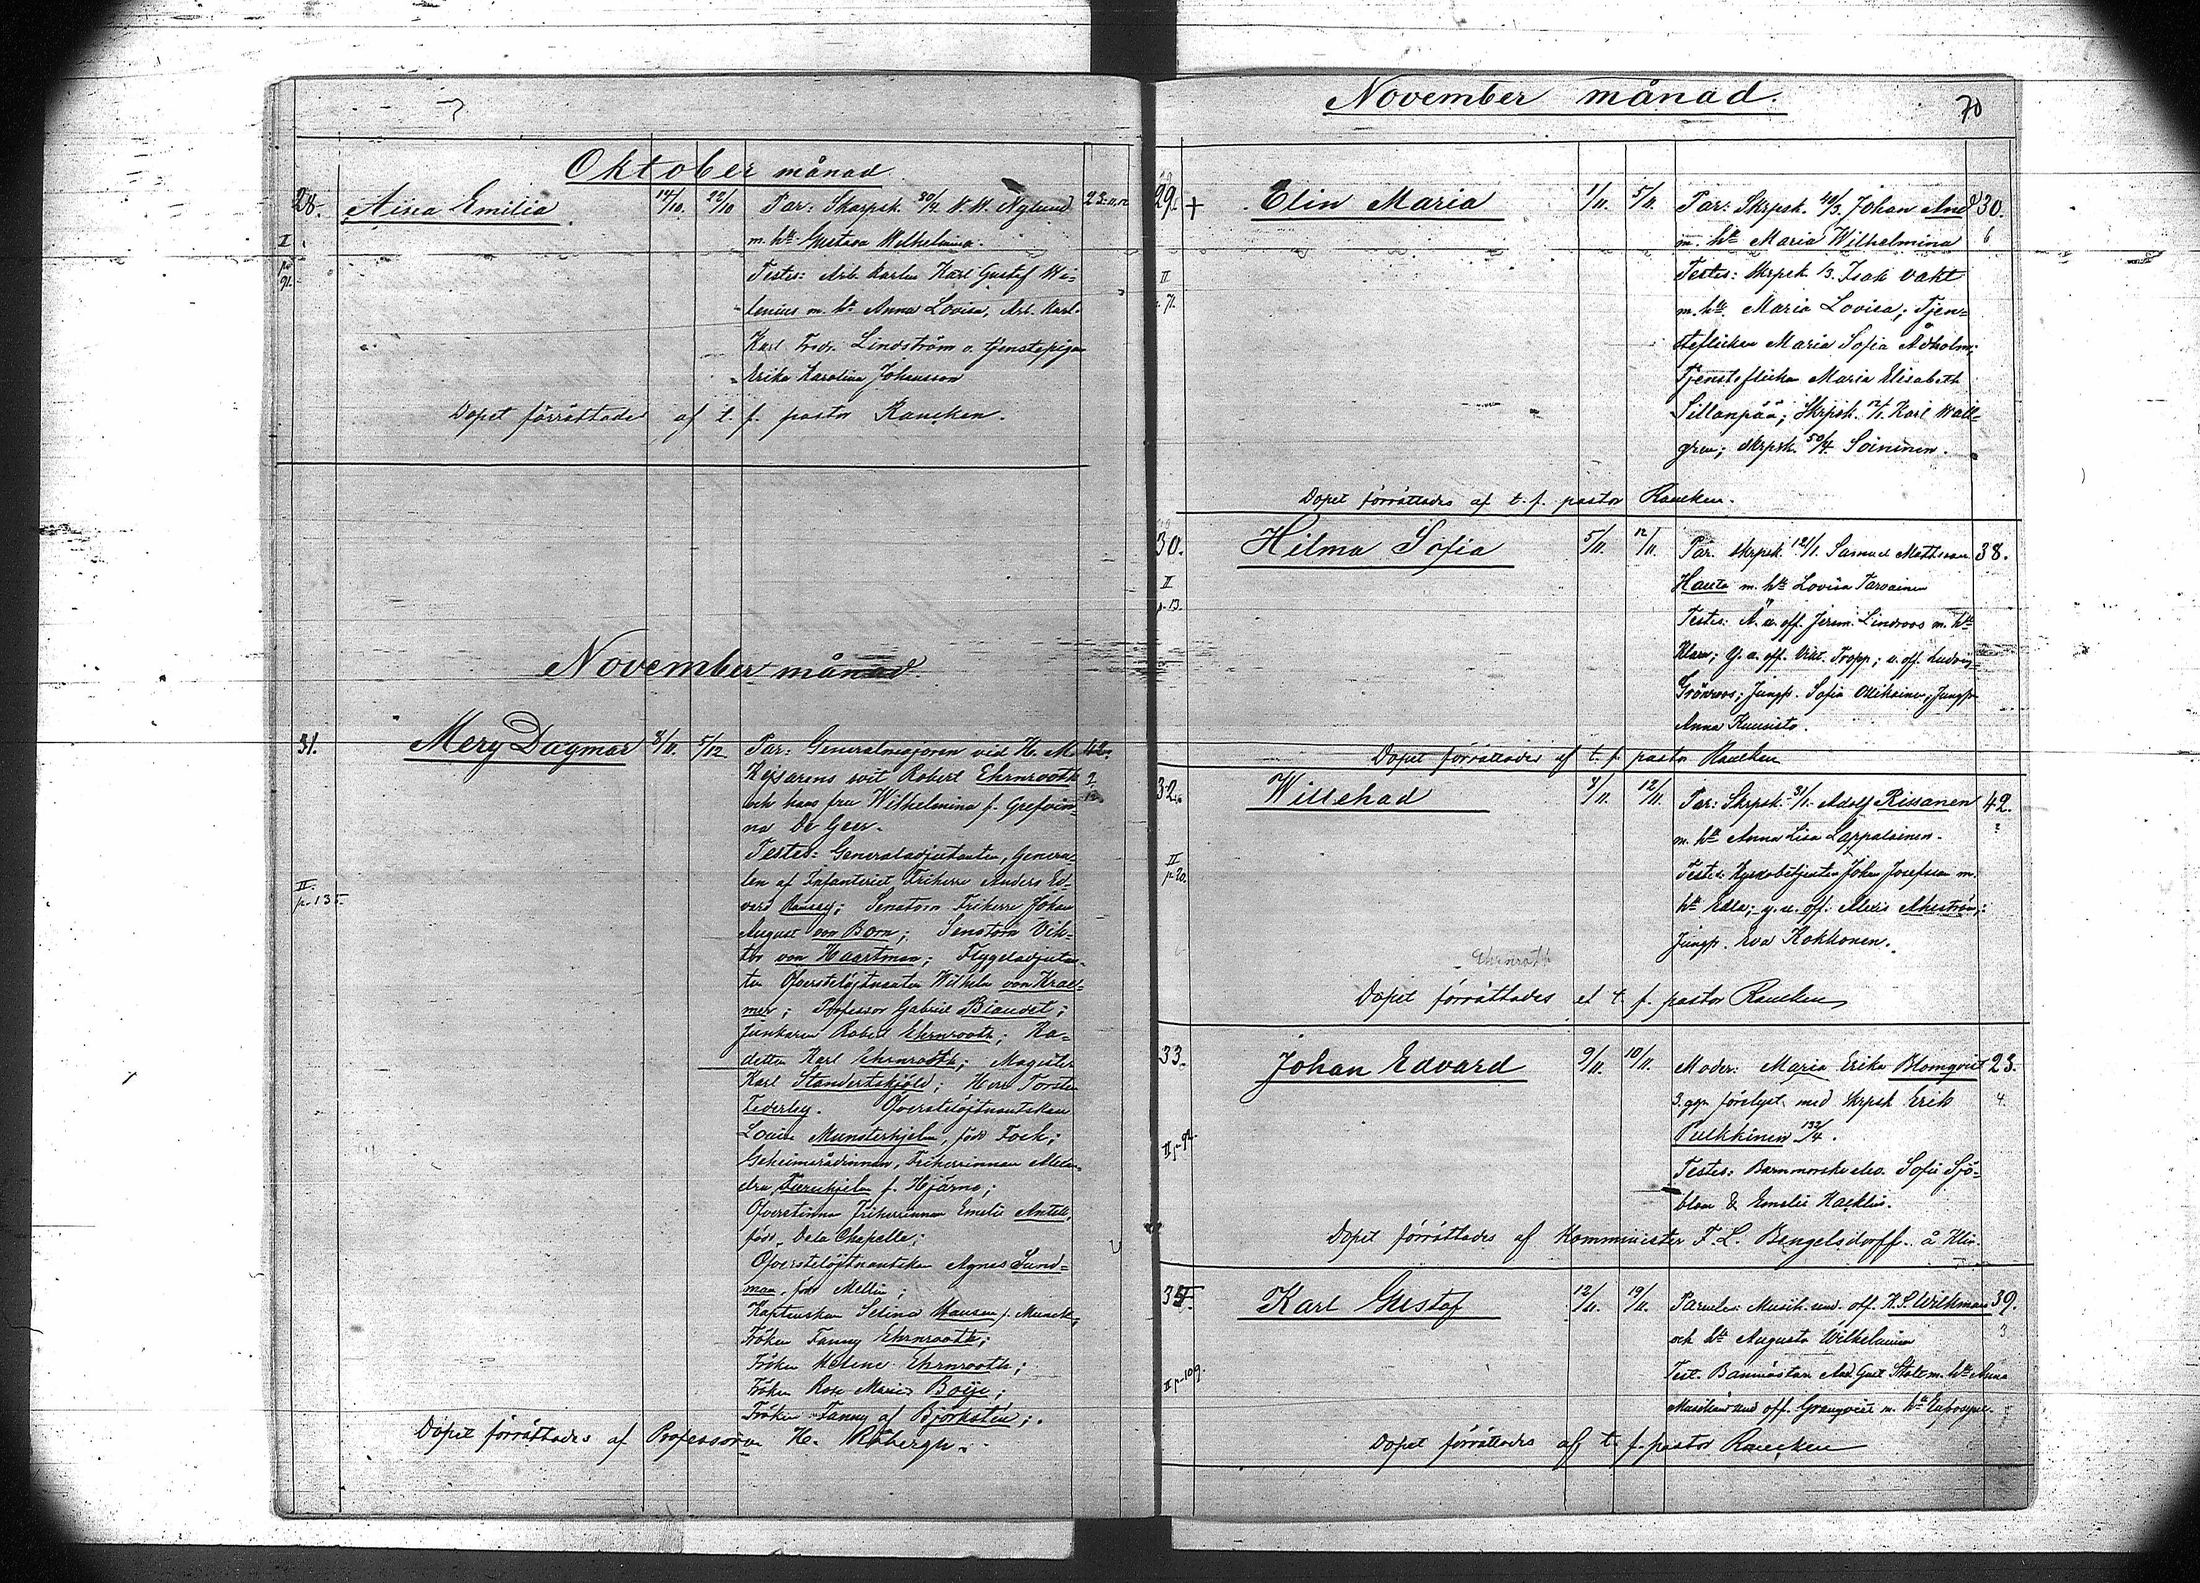 Oktober månad
28. Aina Emilia 14/10. 22/10 Par: Skarpsk. 30/4. N. W. Nylund 23.
I m. h. Gustava Wilhelmina.
p. 91. Testes: Arb. karlen Karl Gustaf We-
lenius m. h. Anna Lovisa, Arb. Karl.
Karl Fredr. Lindström o. tjenstepigan
Erika Karolina Johansson
Dopet förrättades af t. f. pastor Raucken.
November månad
31. Mery Dagmar 8/11. 5/12 Par: Generalmajoren vid H. M. 42.
Kejsarens svit Robert Ehrnrooth
och hans fru Wilhelmina f. Grefvin-
na De Geer.
Testes: Generaladjutanten, Genera-
II. len af Infanteriet Friherre Anders Ed-
p. 135. vard Ramsay; Senatorn Friherre Johan
August von Born; Senatorn Vik-
tor von Haartman; Flygeladjutan-
ten Öfverstelöjtnanten Wilhelm von Krae-
mer; Professor Gabriel Biaudet;
Junkaren Robert Ehrnrooth; Ka-
detten Karl Ehrnrooth; Magister
Karl Standertskjöld; Herr Torsten
Federley. Öfverstelöjtnantskan
Louise Munsterhjelm, född Fock;
Geheimerådinnan, Friherrinnan
dra Furuhjelm f. Hjärne;
Öfverstinnan Friherrinnan Emelie Antell,
född De la Chapelle;
Öfverstelöjtnantskan Agnes Sund-
man, född Mellin;
Kaptenskan Selina f. Munck;
Fröken Fanny Ehrnrooth;
Fröken Helene Ehrnrooth;
Fröken Rose Marie Boije;
Fröken Fanny af Björksten;
Dopet förrättades af Professoren H. Råbergh.
November månad. 70
29. + Elin Maria 1/11. 5/11. Par: Skrpsk. 40/3. Johan And 30.
m. h. Maria Wilhelmina 6
II Testes: Skrpsk 1/3. Isak Vakt
p. 71. m. h. Maria Lovisa; Tjen-
steflickan Maria Sofia Ådholm;
Tjensteflickan Maria Elisabeth
Sillanpää; Skrpsk. Karl Wall-
gren; Skrpsk. 50/4. Soininen.
Dopet förrättades af t. f. pastor Raucken.
30. Hilma Sofia 5/11. 12/11. Par. Skrpsk. 121/1. Samuel Mattsson 38.
II Hauta m. h. Lovisa Tarvainen
p. 13. Testes: Ä. u. off. Jerem. Lindroos m. h.
Klara; y. u. off. Vikt. Tropp; u. off. Ludvig
Grönroos; Jungf. Sofia Ollikainen; Jungf.
Anna Kuusisto.
Dopet förrättades af t. f. pastor Raucken
32. Willehad 8/11. 12/11. Par: Skrpsk. 31/1. Adolf Rissanen 42.
m. h. Anna Lisa Lappalainen. 2
II Testes: Kyrkobetjenten Johan Josefsson m.
p. 20. h. Edla; y. u. off. Alexis Ahlström;
Jungf. Eva Kokkonen.
Ehrnrooth
Dopet förrättades af t. f. pastor Raucken
33. Johan Edvard 9/11. 10/11. Moder: Maria Erika Blomqvist 23.
3. ggn förelyst med Skrpsk Erik 4.
Pulkkinen 132/4.
II p. 92. Testes: Barnmorske elev. Sofie Sjö-
blom & Emelie Hacklin.
Dopet förrättades af Komminister F. L. Bengelsdorff. å Klin.
34. Karl Gustaf 12/11. 19/11. Parentes: Musik. und. off. K. S. Wilkman 39.
och h. Augusta Wilhelmina 3
II p. 109. Test. Banmästaren And. Gust. Stolt m. h. Anna
Musikundoff. Granqvist m. h. Eufrosyne.
Dopet förrättades af t. f. pastor Raucken